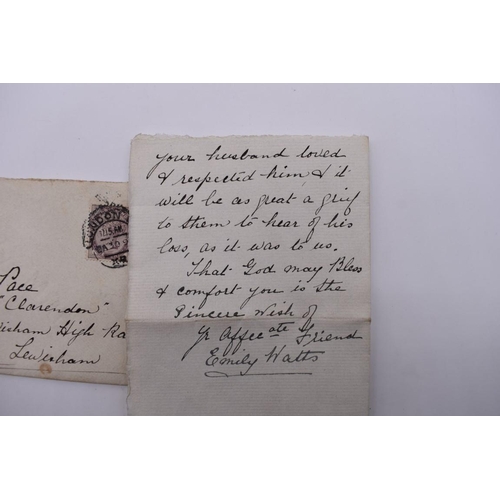 your husband loved
& respected him, & it
will be as great a grief
to them to hear of his
loss, as it was to us.
That God may Bless
& comfort you is the
Sincere Wish of
Yr Affec ate Friend
Emily Watts
Pace
"Clarendon"
isham High Ra
Lewisham
LONDON
11.15 AM